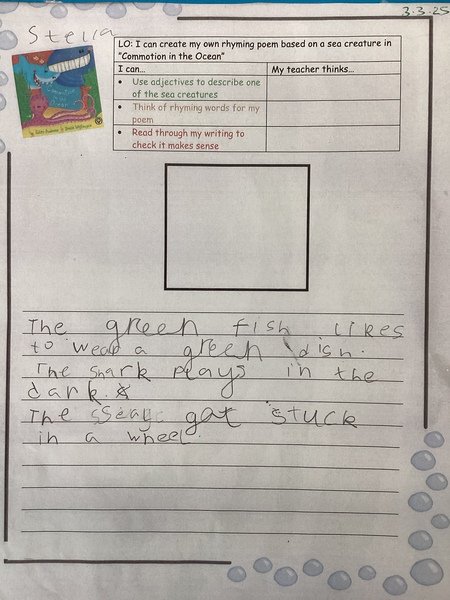 3.3.25
Stella
LO: I can create my own rhyming poem based on a sea creature in
"Commotion in the Ocean"
I can...
My teacher thinks...
Use adjectives to describe one
of the sea creatures
Think of rhyming words for my
poem
Read through my writing to
check it makes sense
Commotion
in the
Ocean
The green fish likes
to wear a green dish.
The shark plays in the
dark.
The got stuck
in a wheel.